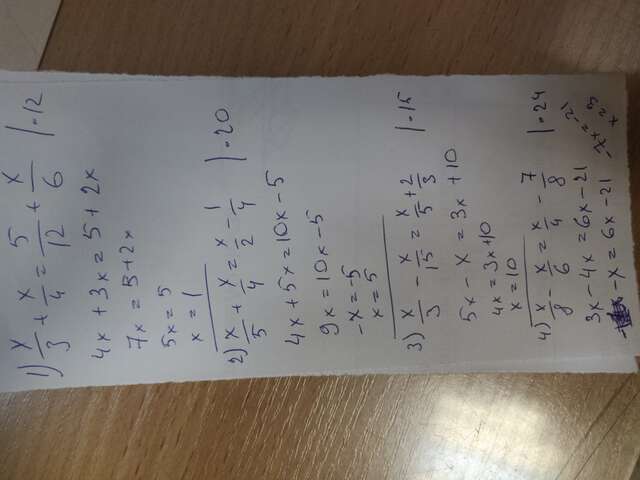 1) x/3 + x/4 = 5/12 + x/6 |·12
4x + 3x = 5 + 2x
7x = 5 + 2x
5x = 5
x = 1
2) x/5 + x/4 = x/2 - 1/4 |·20
4x + 5x = 10x - 5
9x = 10x - 5
-x = -5
x = 5
3) x/3 - x/15 = x/5 + 2/3 |·15
5x - x = 3x + 10
4x = 3x + 10
x = 10
4) x/8 - x/6 = x/4 - 7/8 |·24
3x - 4x = 6x - 21
-x = 6x - 21
-7x = -21
x = 3